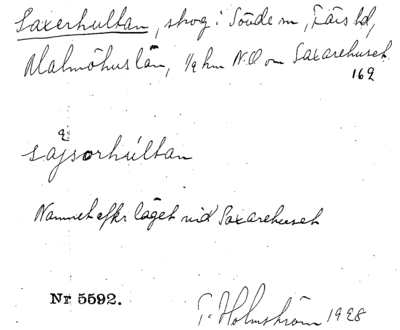 Saxerhultan, skog i Sövde sn, Färs hd,
Malmöhus län, 1/2 km N.O om Saxarehuset
162
sajsorhúltan
Namnet efter läget vid Saxarehuset
Nr 5592.
T. Holmström 1928